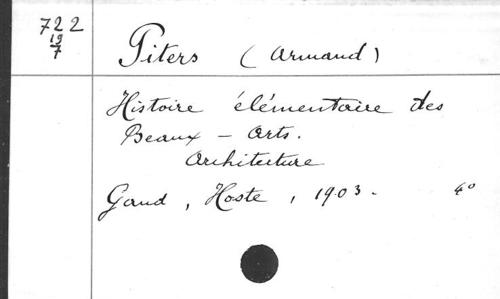 722
19
7
Piters (Armand)
Histoire élémentaire des
Beaux - Arts.
Architecture
Gand, Hoste, 1903. 4°